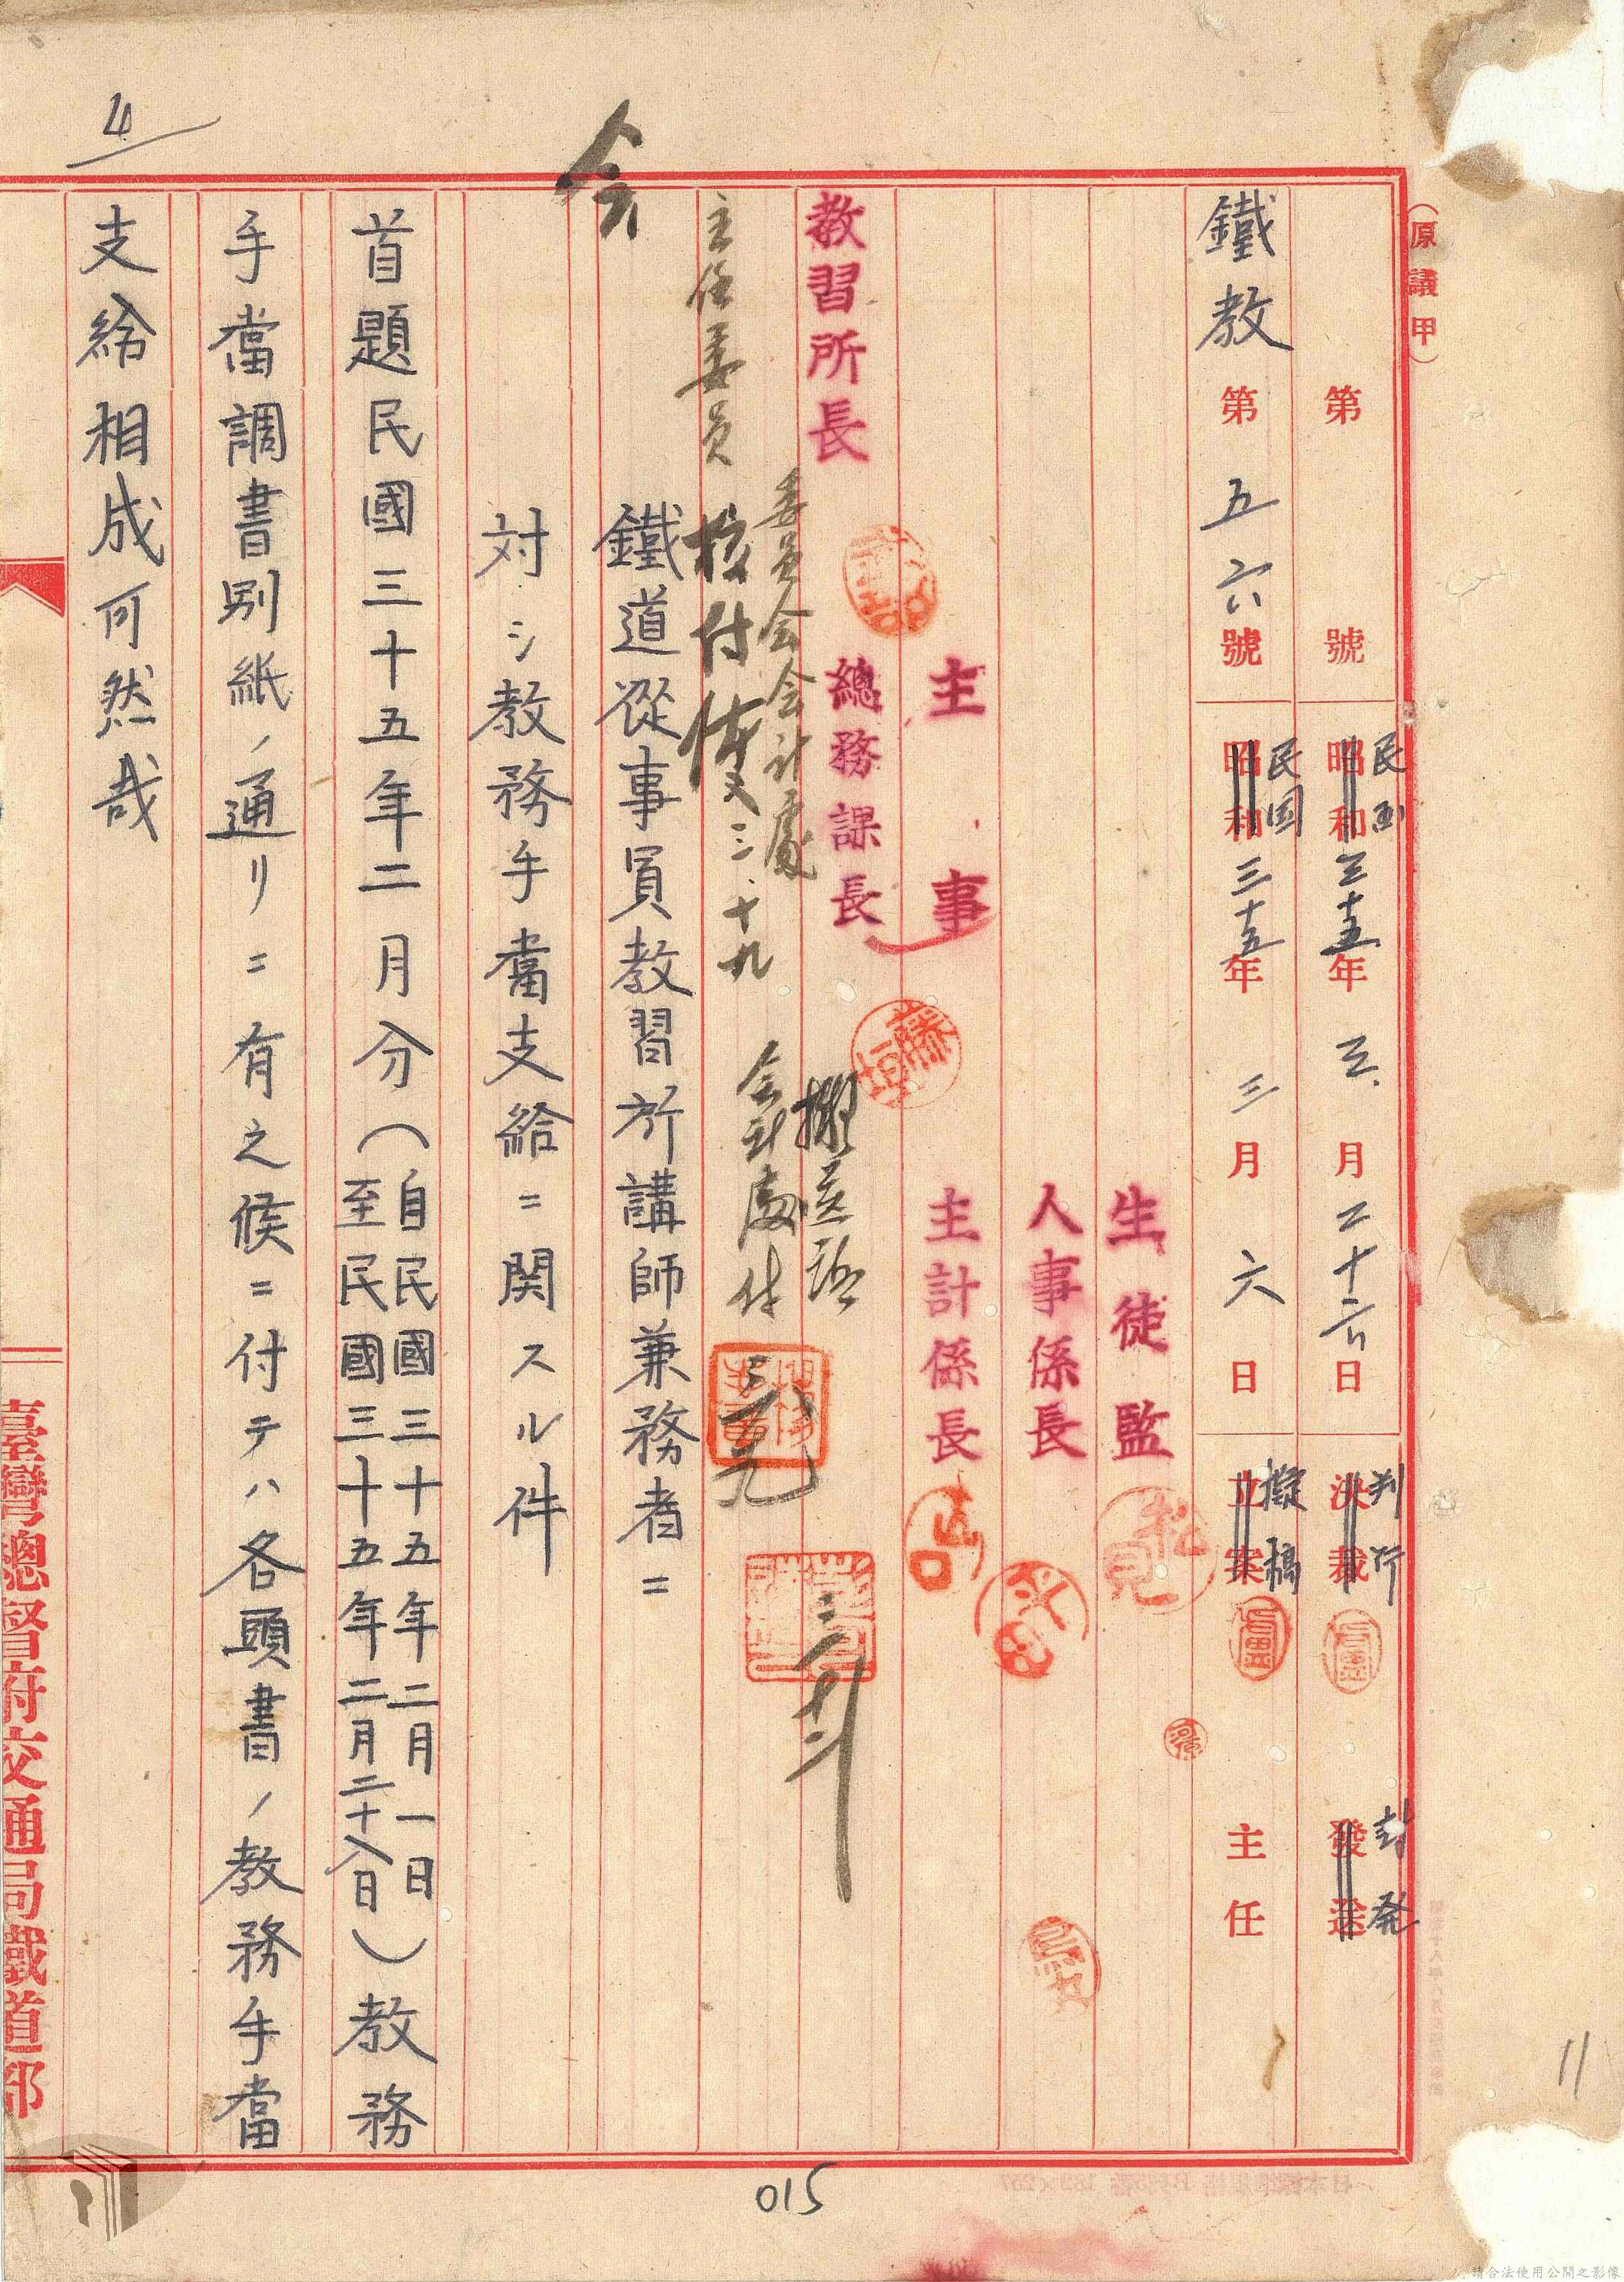 (原議甲)
第 號 昭和 民国 三十五年 三月 二十六日 決裁 判行 發送 封発
鐵教 第五六號 昭和 民国 三十五年 三月 六日 立案 擬稿 主任
生徒監 松見
人事係長
主事 主計係長
教習所長 總務課長
委員会会計處
主任委員
会計處
会
鐵道從事員教習所講師兼務者ニ
対シ教務手當支給ニ関スル件
首題民國三十五年二月分(自民國三十五年二月一日
至民國三十五年二月二十八日)教務
手當調書別紙ノ通リニ有之候ニ付テハ各頭書ノ教務手當
支給相成可然哉
臺灣總督府交通局鐵道部
4
015
11
請合法使用公開之影像